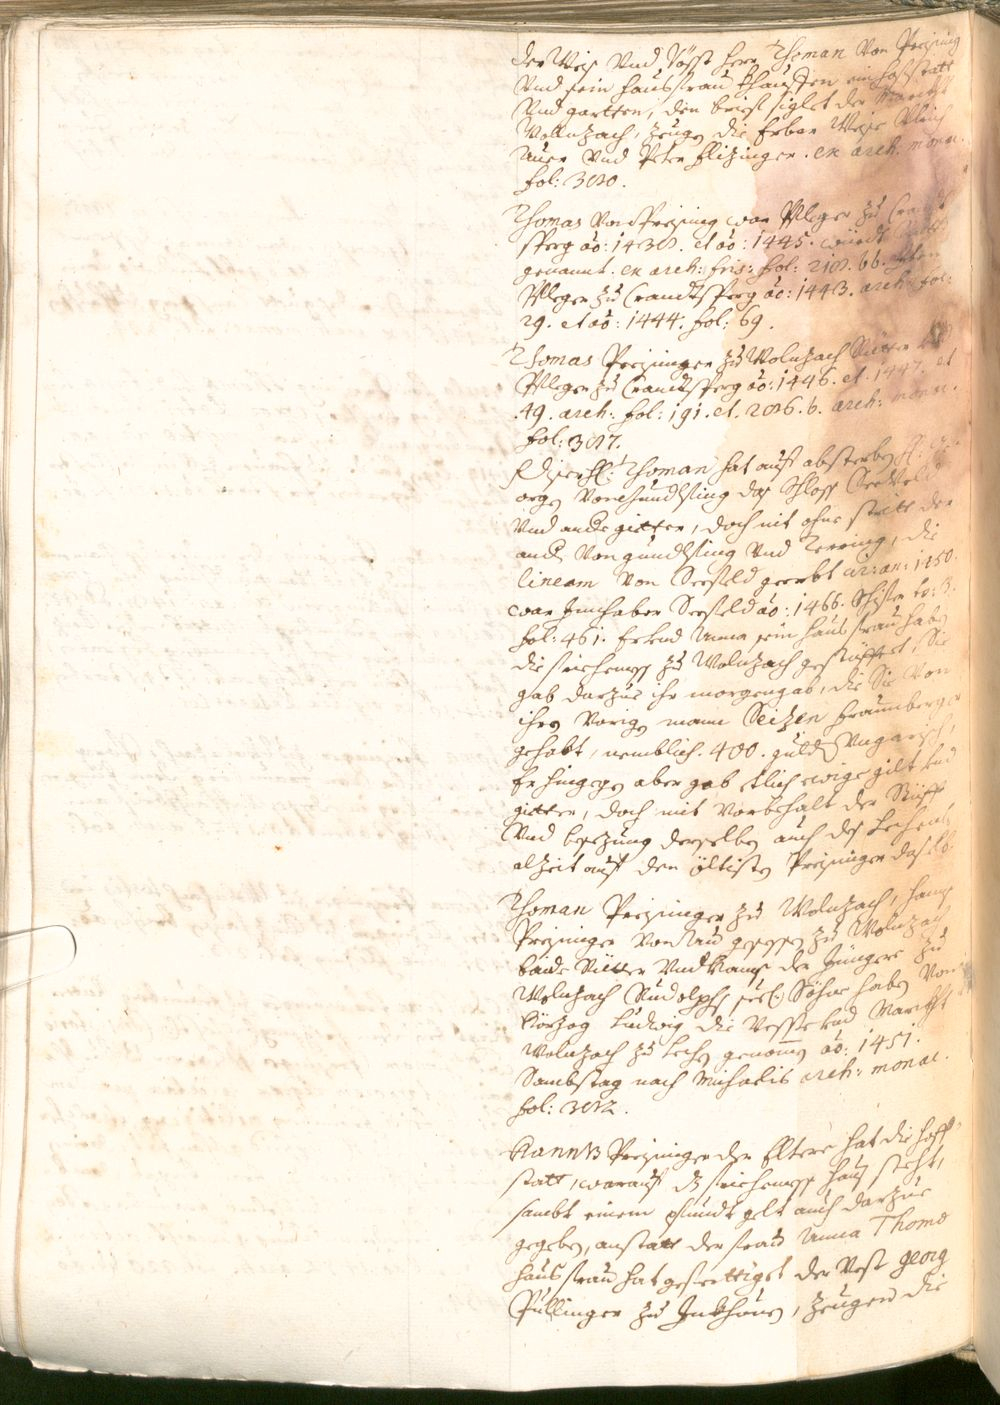 der Weis Und Vösst herr Thoman Von Preising
Und sein hausfrau khaufften ein hoffstatt
Und gartten, den brief siglet der Marckht
Wolnzach, Zeugen die Erbar Weise Ulrich
Auer Und Peter Flizinger. ex arch. monac.
fol: 300.
Thomas Von Preising war Pfleger zu Crandt
sperg ao: 1430. et ao: 1445. wirdt
genannt. ex arch: fris: fol: 210. 66. Item
Pfleger zu Crandtsperg ao: 1443. arch: fol:
29. et ao: 1444. fol: 69.
Thomas Preisinger zu Wolnzach Ritter
Pfleger zu Crandtsperg ao: 1446. et. 1447. et
.49. arch: fol: 191. et. 206. b. arch: monac.
fol: 307.
Thoman hat auf absterben H:
orgen Von Gundlfing das Schloss Seefeld
Und andre gietter, doch nit ohne stritt der
andern Von Gundlfing Und Terring, die
lineam Von Seefeld geerbt ar: an: 1450.
war Innhaber Seefeld ao: 1466. to: 3.
fol: 461. Er Und Anna sein hausfrau haben
die friehemess zu Wolnzach gestüfftet, Sie
gab darzue ihr morgengab, die Sie Von
ihren Vorigen mann Seitzen Fraunberger
gehabt, nemblich. 400. guldn Ungarisch,
Er hingegen aber gab etlich ewige gilt Und
gietter, doch mit Vorbehalt der Stüfft
Und besezung derselben auch des Lehens
alzeit auf den öltisten Preisinger daselbs.
Thoman Preisinger zu Wolnzach, hans
Preisinger Von gesessen zu Wolnzach
baide Ritter Und hans der Jünger zu
Wolnzach Rudolphs seel: Söhne haben Von
Hörzog Ludwig die Vesste Und Marckht
Wolnzach zu Lehen genommen ao: 1451.
Sambstag nach Michaelis arch: monac.
fol: 302.
Hanns Preisinger der Eltere hat die hoff
statt, worauf dz friehemess haus steht,
sambt einem pfundt gelt auch darzue
gegeben, anstatt der frau Anna Thomæ
hausfrau hat gefertiget der Vest georg
Püllinger zu Inkhoven, Zeugen die